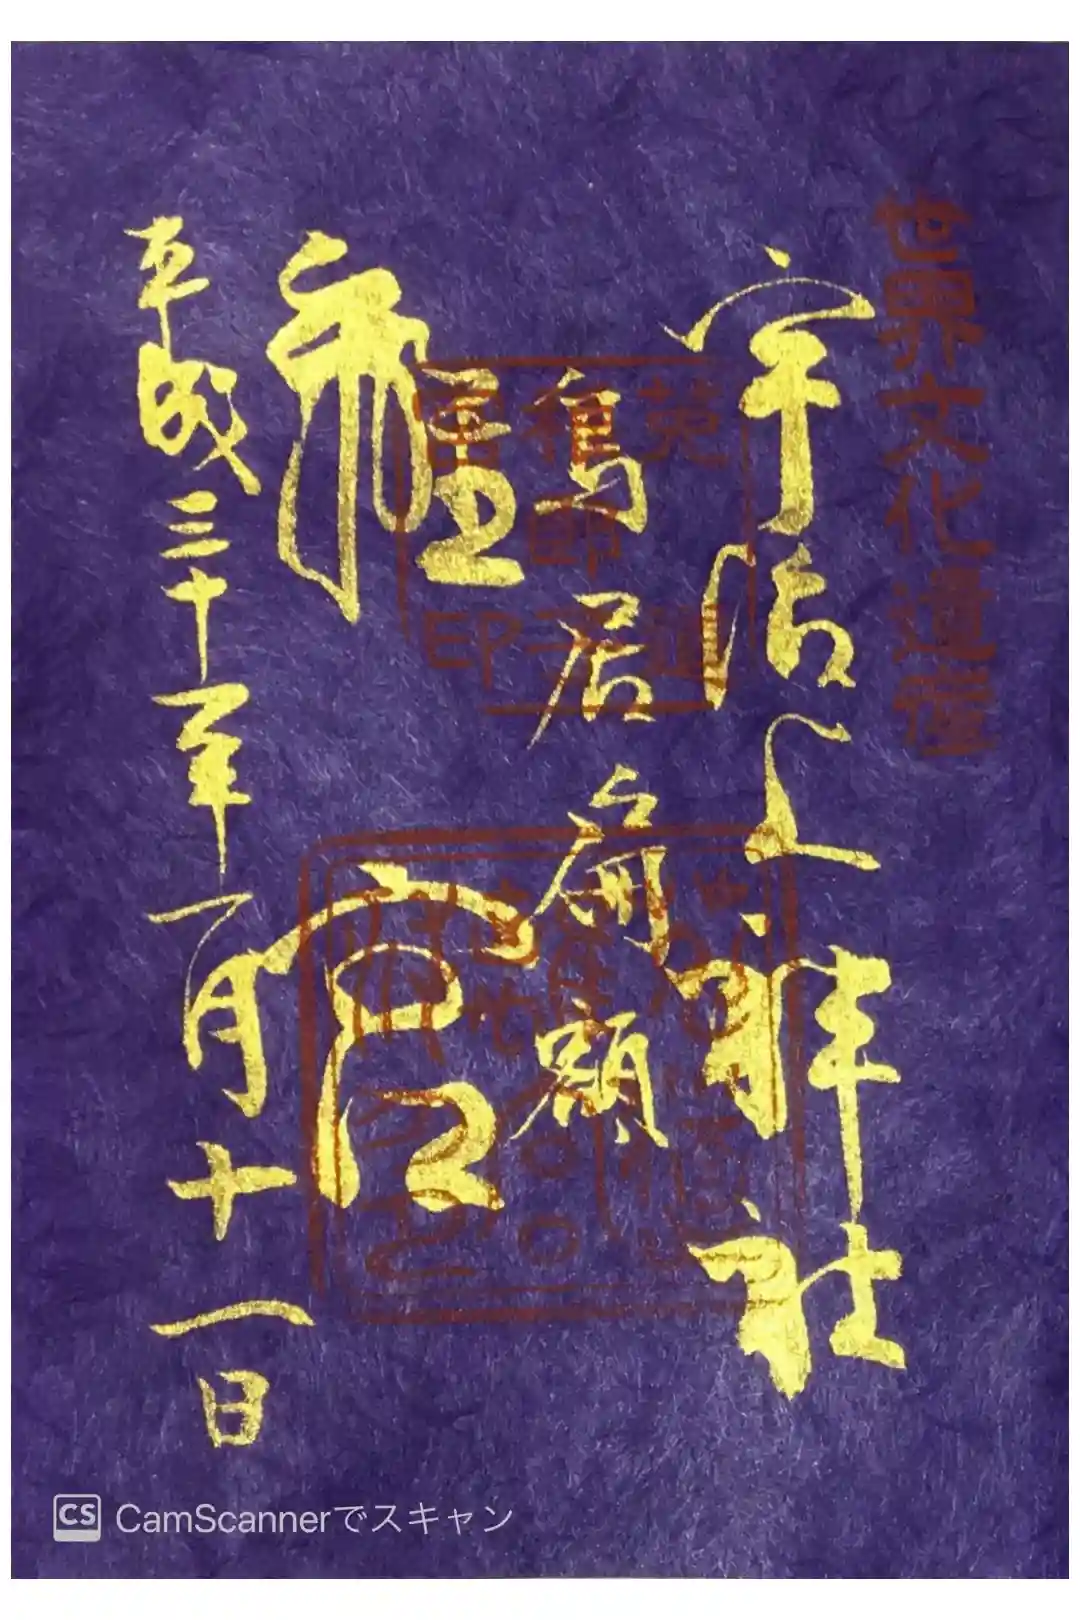 世界文化遺産
宇治上神社
鳥居扁額
離宮
平成三十年一月十一日
菟道
稚郎子
印
CS CamScannerでスキャン